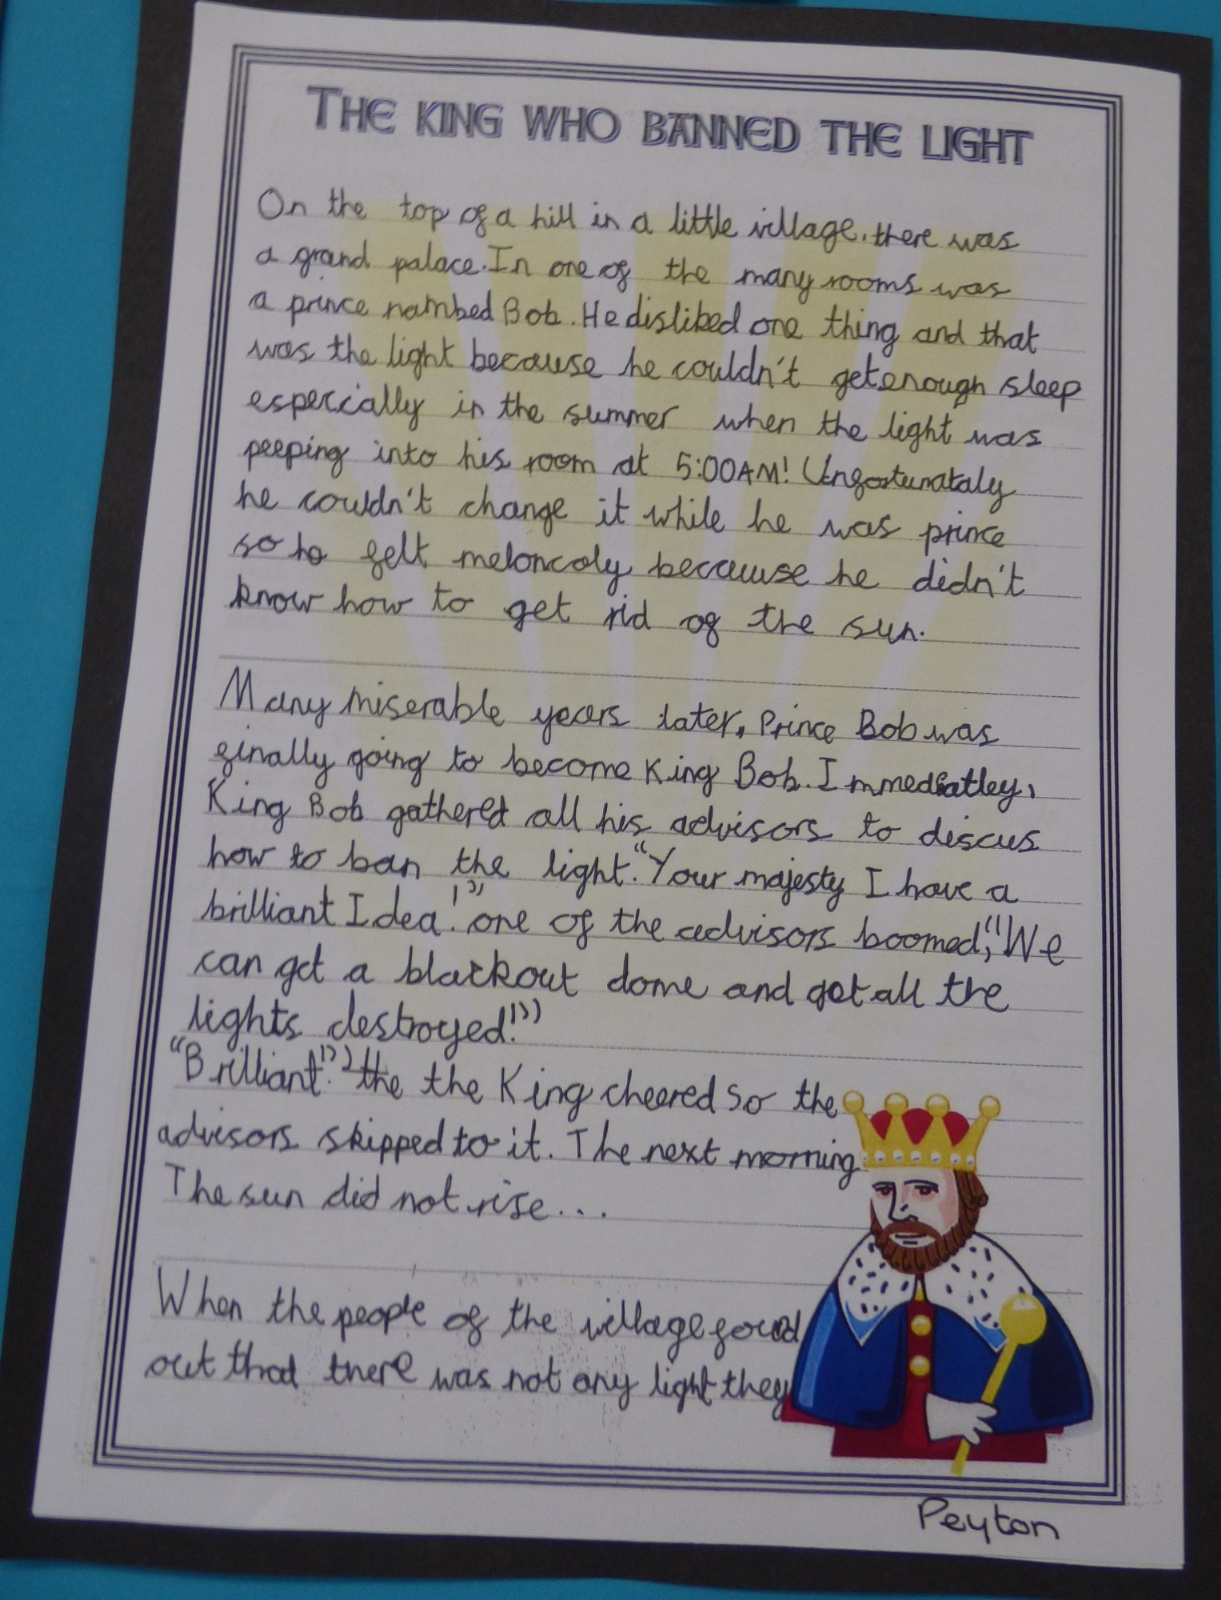 THE KING WHO BANNED THE LIGHT
On the top of a hill in a little village, there was
a grand palace. In one of the many rooms was
a prince nambed Bob. He disliked one thing and that
was the light because he couldn't get enough sleep
especially in the summer when the light was
peeping into his room at 5:00AM! Unfortunataly
he couldn't change it while he was prince
so he felt meloncoly because he didn't
know how to get rid of the sun.
Many miserable years later, Prince Bob was
finally going to become King Bob. Immediatley,
King Bob gathered all his advisors to discus
how to ban the light. "Your majesty I have a
brilliant Idea!" one of the advisors boomed, "We
can get a blackout dome and get all the
lights destroyed!"
"Brilliant!" the the King cheered so the
advisors skipped to it. The next morning
The sun did not rise...
When the people of the village found
out that there was not any light they
Peyton